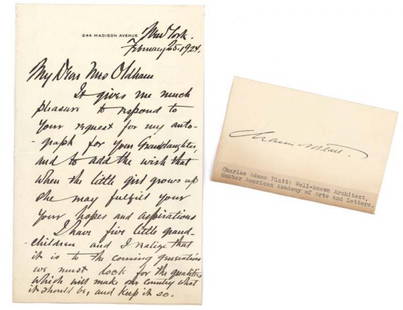 244 MADISON AVENUE
New York.
February 25-1924.
My Dear Mrs Oldham
It gives me much
pleasure to respond to
your request for my auto-
graph for your Granddaughter,
and to add the wish that
when the little girl grows up
she may fulfill your
Your hopes and aspirations
I have five little grand-
children and I realize that
it is to the coming generations
we must look for the qualities
which will make our country what
it should be, and keep it so.
Charles A Platt.
Charles Adams Platt: Well-known Architect,
Member American Academy of Arts and Letters.